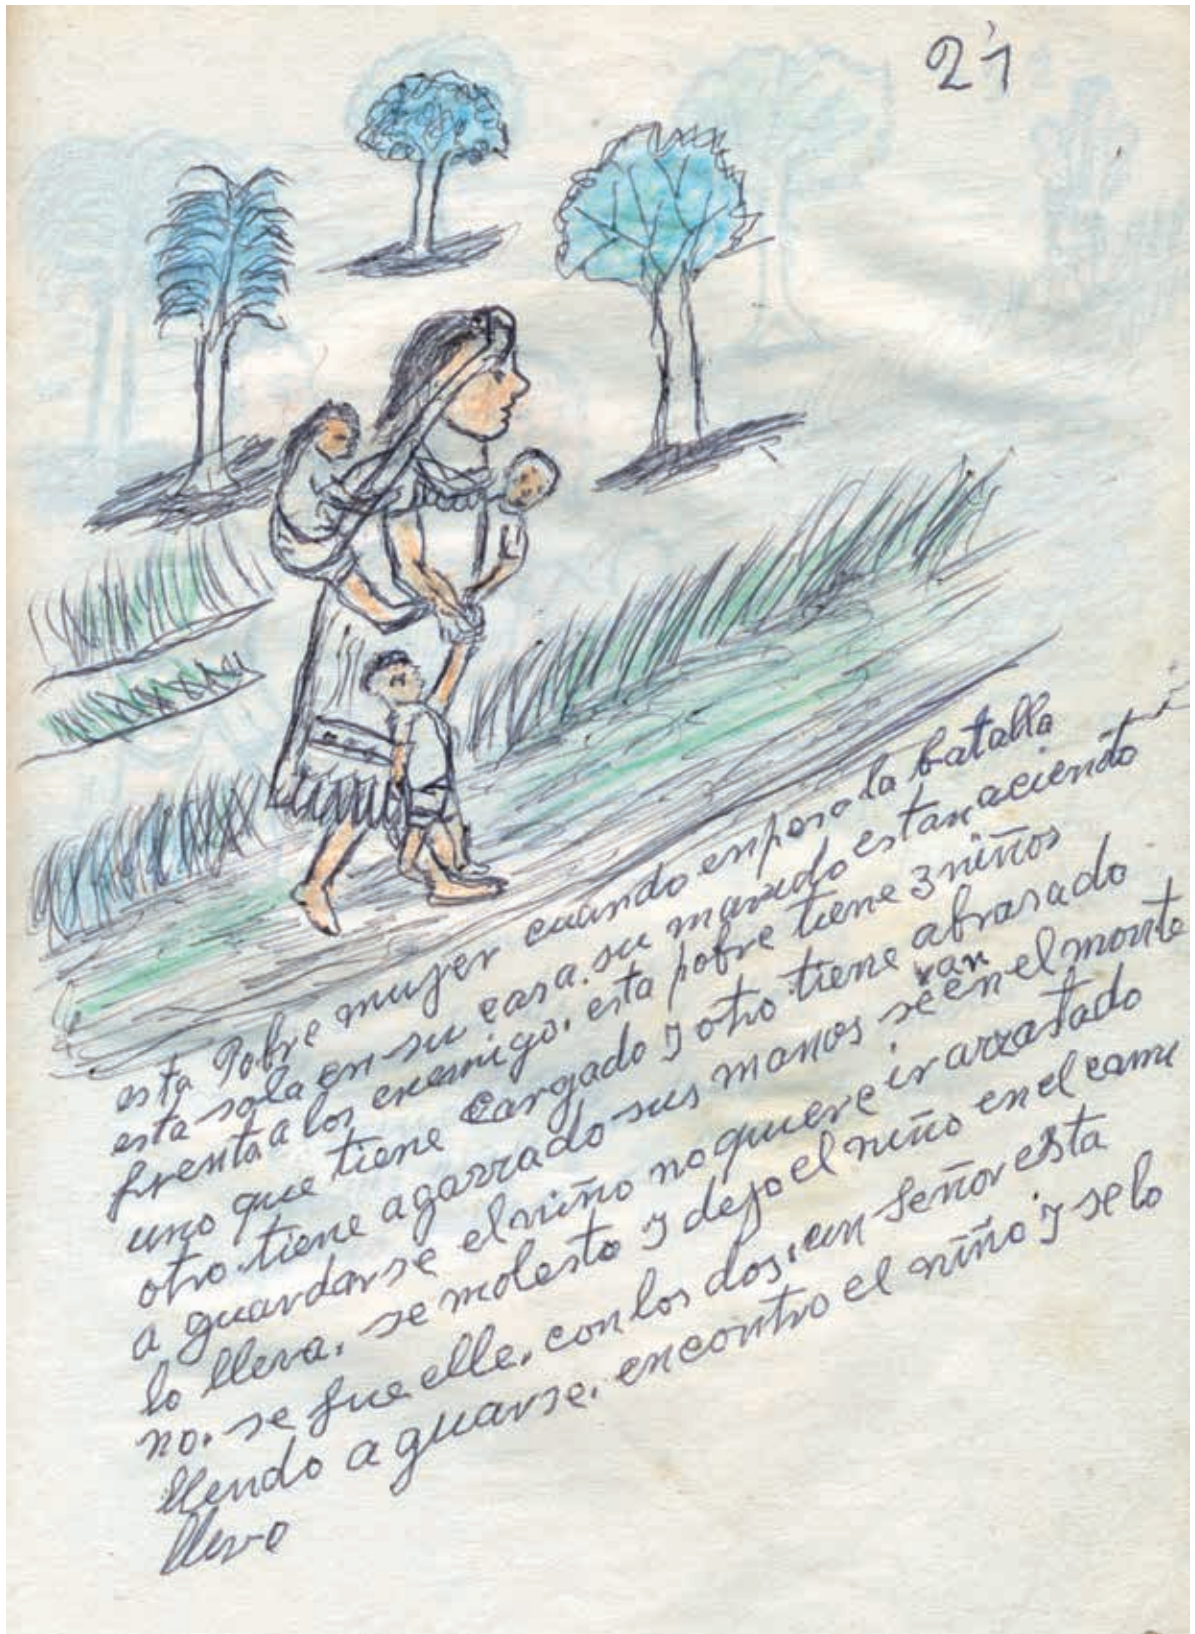 21
esta Pobre mujer cuando enpeso la batalla
esta sola en su casa. su marido estan aciendo
frenta a los enemigo. esta pobre tiene 3 niños
uno que tiene cargado y otro tiene abrasado
otro tiene agarrado sus manos se van en el monte
a guardarse el niño no quiere ir arrastado
lo lleva. se molesto y dejo el niño en el cami
no. se fue elle. con los dos. un señor esta
llendo a guarse. encontro el niño y se lo
llevo